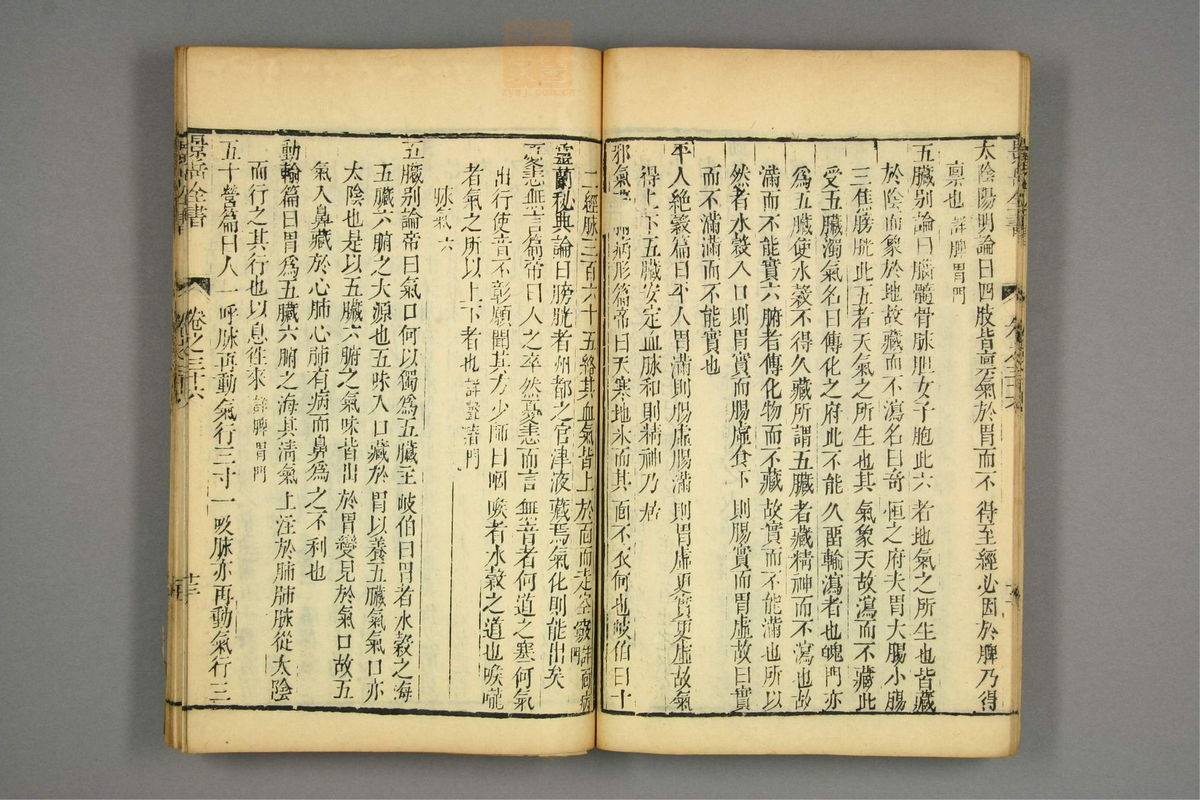 太陰陽明論曰四肢皆稟氣於胃而不得至經必因於脾乃得
稟也詳脾胃門
五臟別論曰腦髓骨脉胆女子胞此六者地氣之所生也皆藏
於陰而象於地故藏而不瀉名曰奇恒之府夫胃大腸小腸
三焦膀胱此五者天氣之所生也其氣象天故瀉而不藏此
受五臟濁氣名曰傳化之府此不能久留輸瀉者也魄門亦
爲五臟使水穀不得久藏所謂五臟者藏精神而不瀉也故
滿而不能實六腑者傳化物而不藏故實而不能滿也所以
然者水穀入口則胃實而腸虛食下則腸實而胃虛故曰實
而不滿滿而不能實也
平人絶穀篇曰平人胃滿則腸虛腸滿則胃虛更實更虛故氣
得上下五臟安定血脉和則精神乃居
邪氣 病形篇帝曰天寒地氷而其面不衣何也岐伯曰十
二經脉三百六十五絡其血氣皆上於面而走空竅詳 病門
靈蘭秘典論曰膀胱者州都之官津液藏焉氣化則能出矣
憂恚無言篇帝曰人之卒然憂恚而言無音者何道之塞何氣
出行使音不彰願聞其方少師曰咽喉者水穀之道也喉嚨
者氣之所以上下者也詳聲瘖門
脉氣六
五臟別論帝曰氣口何以獨爲五臟主岐伯曰胃者水穀之海
五臟六腑之大源也五味入口藏於胃以養五臟氣氣口亦
太陰也是以五臟六腑之氣味皆出於胃變見於氣口故五
氣入鼻藏於心肺心肺有病而鼻爲之不利也
動輸篇曰胃爲五臟六腑之海其清氣上注於肺肺脉從太陰
而行之其行也以息往來詳脾胃門
五十營篇曰人一呼脉再動氣行三寸一吸脉亦再動氣行三
景岳全書
卷之三十六
十三